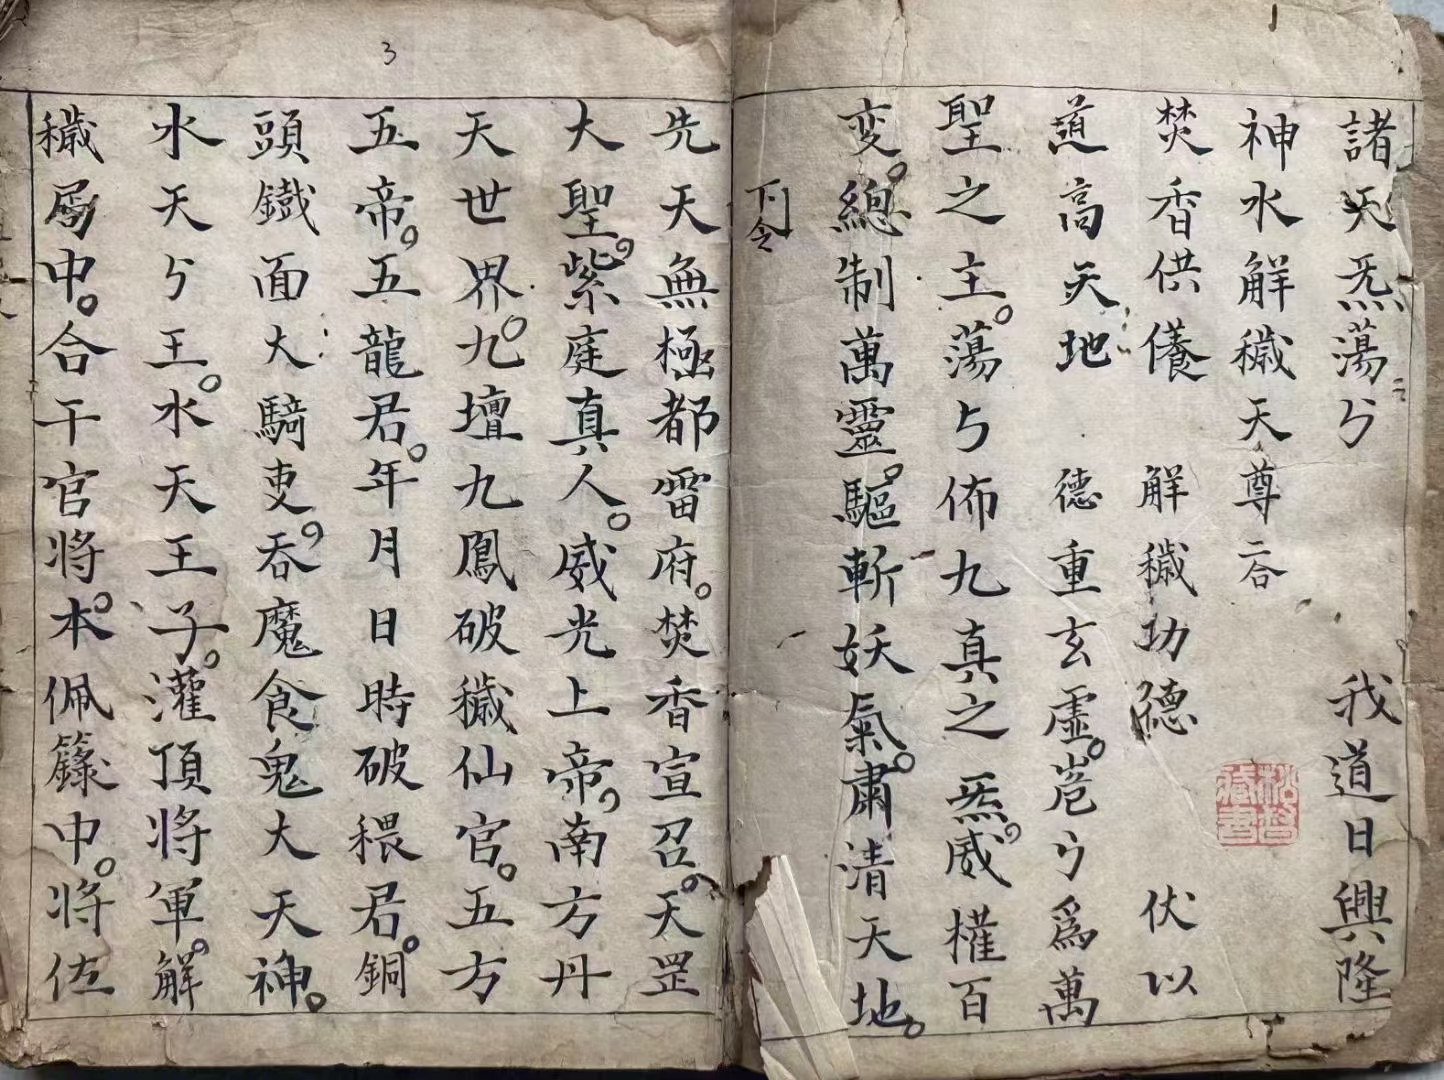 諸天炁蕩ㄣ 我道日興隆
神水解穢天尊 二合
焚香供養 解穢功德 伏以
道高天地 德重玄虛。巍ㄣ為萬
聖之主。蕩ㄣ佈九真之炁。威權百
变。總制萬靈。驅斬妖氣。肅清天地。
下令
3
先天無極都雷府。焚香宣召。天罡
大聖。紫庭真人。威光上帝。南方丹
天世界。九壇九鳳破穢仙官。五方
五帝。五龍君。年月日時破穢君。銅
頭鐵面大騎吏。吞魔食鬼大天神。
水天ㄣ王。水天王子。灌頂將軍。解
穢局中。合干官將。本佩籙中。將佐